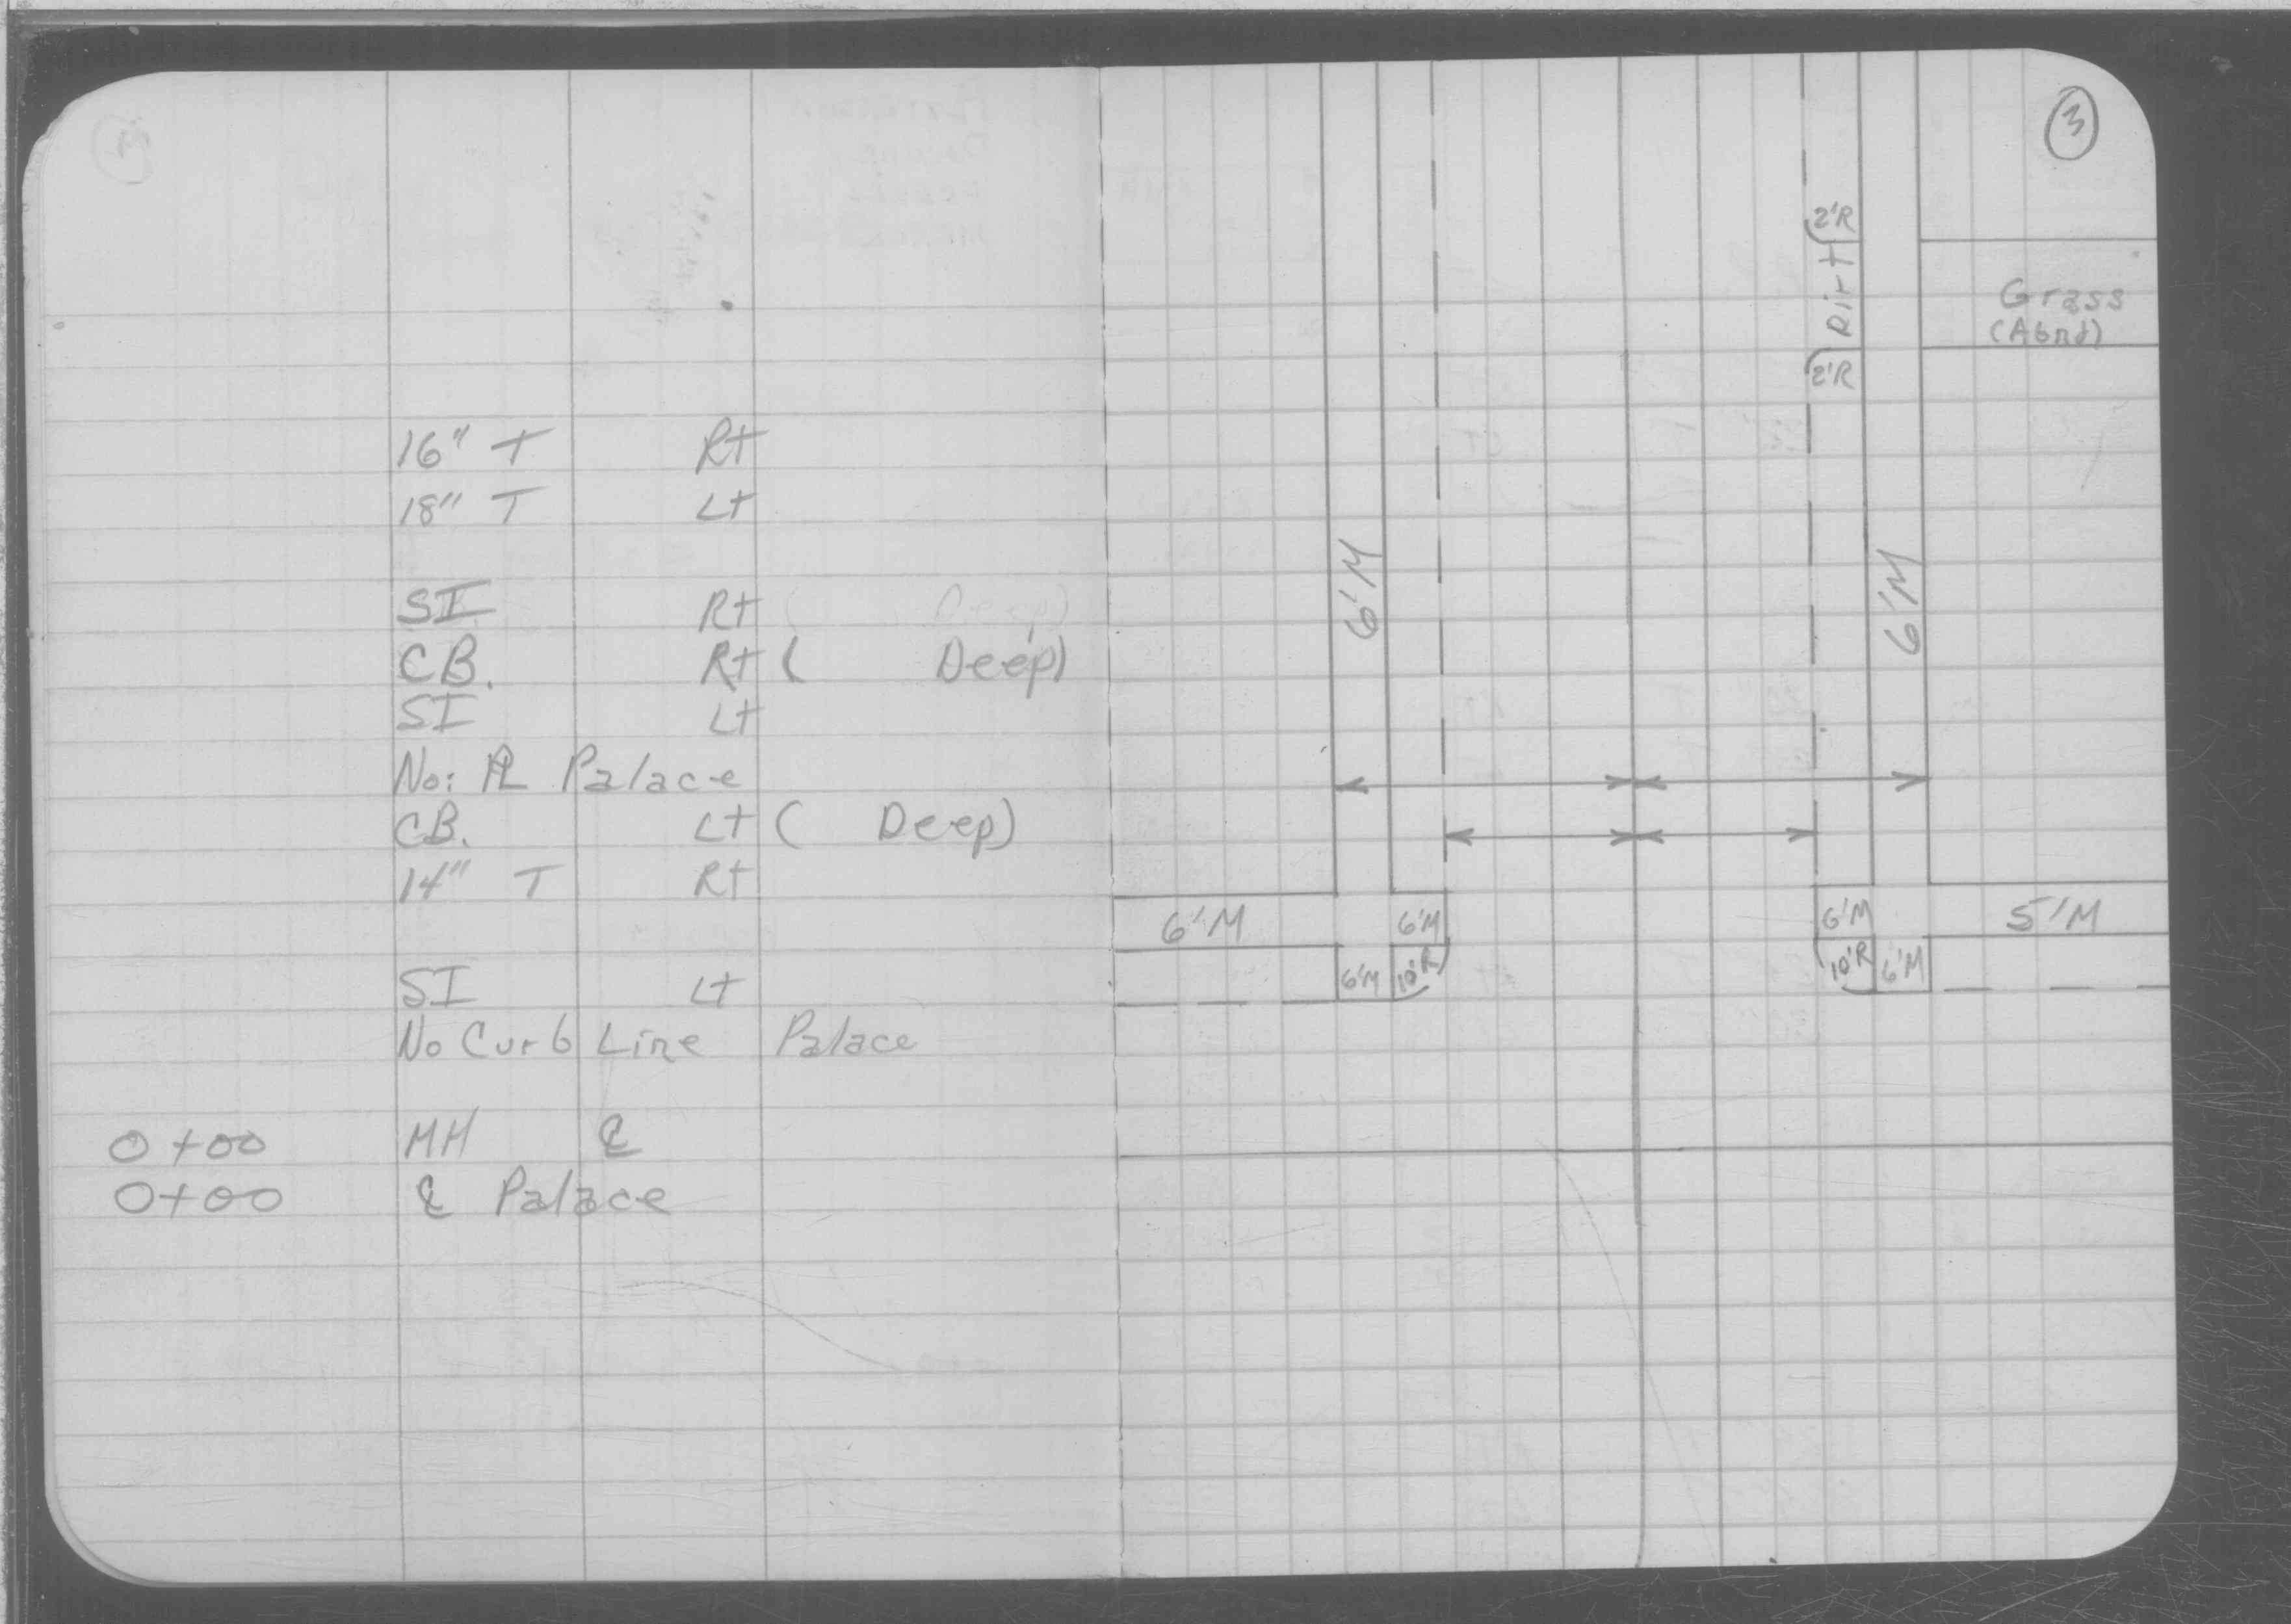 3
16" T Rt
18" T Lt
SI Rt ( Deep)
CB. Rt ( Deep)
SI Lt
No: PL Palace
CB. Lt ( Deep)
14" T Rt
SI Lt
No Curb Line Palace
0+00 MH ℄
0+00 ℄ Palace
2'R
Dirt
2'R
Grass
(Abnd)
6'M
6'M
6'M 6'M 6'M 5'M
6'M 10'R 10'R 6'M